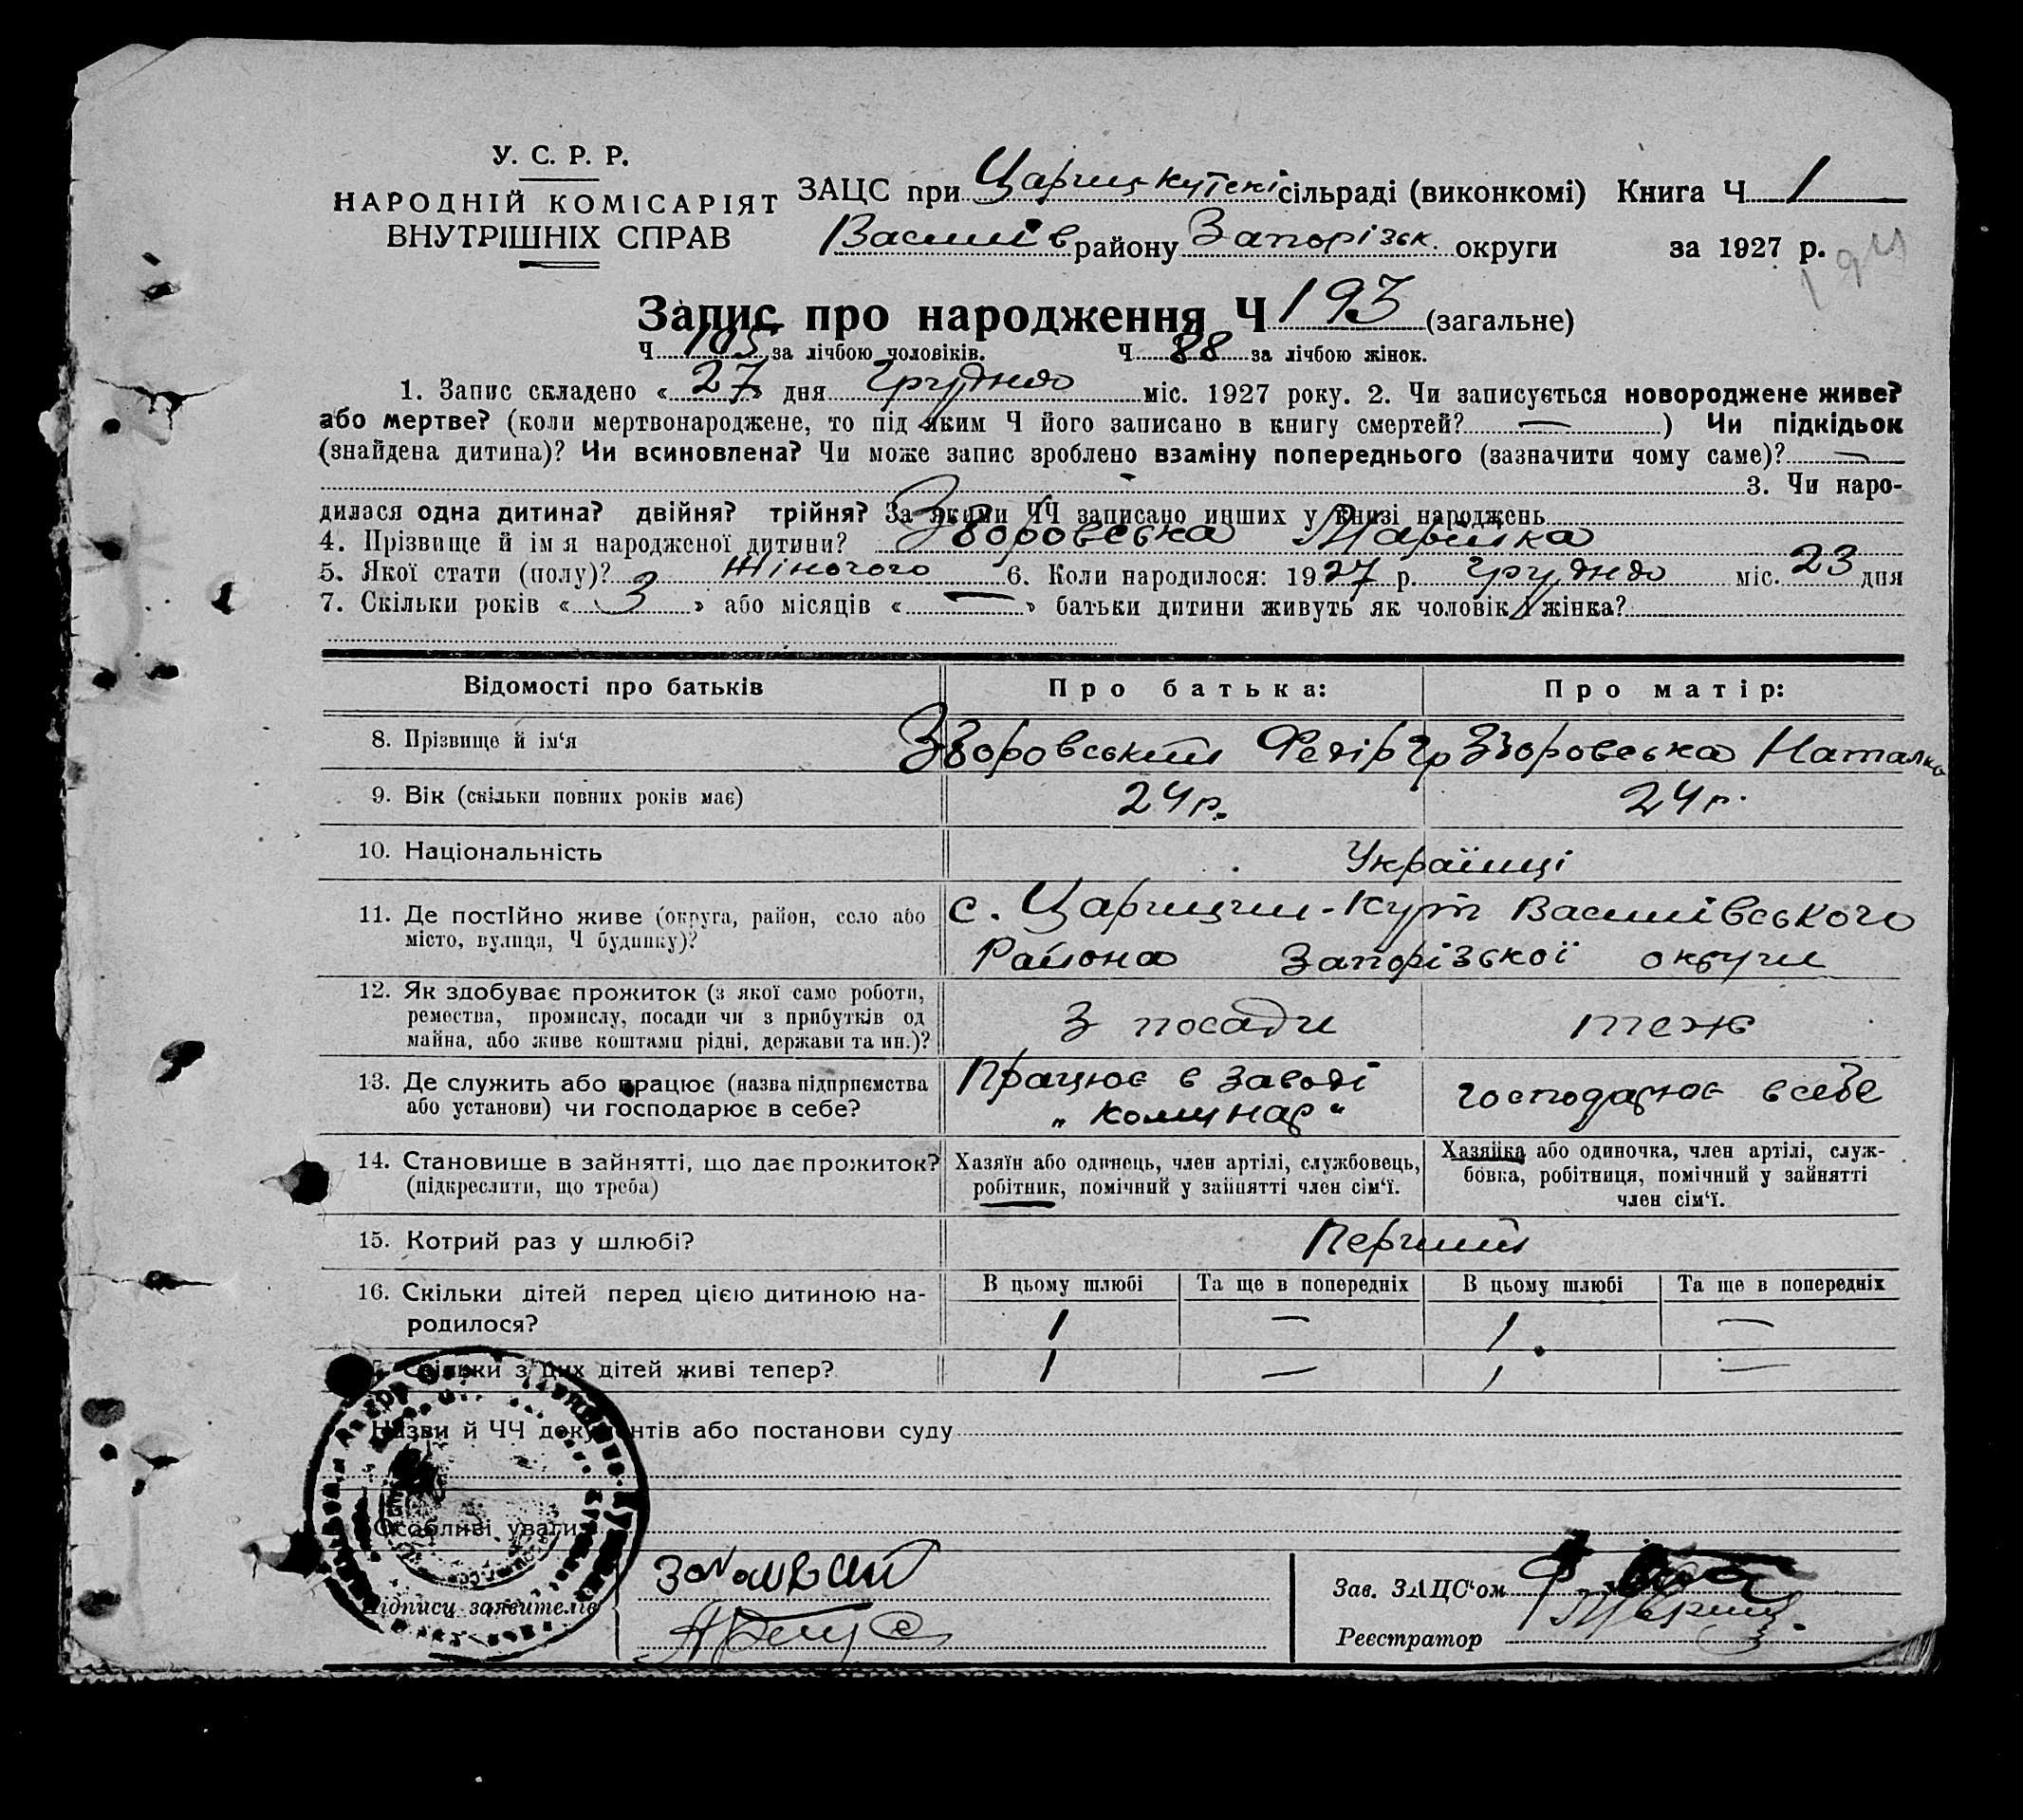 У. С. Р. Р.
НАРОДНІЙ КОМІСАРІЯТ
ВНУТРІШНІХ СПРАВ
ЗАЦС при Царицкутскі сільраді (виконкомі) Книга Ч 1
Василів району Запорізьк. округи за 1927 р.
194
Запис про народження Ч 193 (загальне)
Ч 105 за лічбою чоловіків. Ч 88 за лічбою жінок.
1. Запис складено « 27 » дня Грудня міс. 1927 року. 2. Чи записується новороджене живе?
або мертве? (коли мертвонароджене, то під яким Ч його записано в книгу смертей? — ) Чи підкідьок
(знайдена дитина)? Чи всиновлена? Чи може запис зроблено взаміну попереднього (зазначити чому саме)? —
3. Чи наро-
дилася одна дитина? двійня? трійня? За якими ЧЧ записано инших у книзі народжень
4. Прізвище й імя народженої дитини? Зборовська Марійка
5. Якої стати (полу)? Жіночого 6. Коли народилося: 1927 р. Грудня міс. 23 дня
7. Скільки років « 3 » або місяців « — » батьки дитини живуть як чоловік і жінка?
Відомості про батьків Про батька: Про матір:
8. Прізвище й ім‘я Зборовський Федір Гр Зборовська Наталка
9. Вік (скільки повних років має) 24 р. 24 р.
10. Національність Українці
11. Де постійно живе (округа, район, село або с. Царицин-Кут Василівського
місто, вулиця, Ч будинку)? Района Запорізької округи
12. Як здобуває прожиток (з якої саме роботи,
ремества, промислу, посади чи з прибутків од З посади теж
майна, або живе коштами рідні, держави та ин.)?
13. Де служить або працює (назва підприємства Працює в заводі господарює в себе
або установи) чи господарює в себе? „Комунар“
14. Становище в зайнятті, що дає прожиток? Хазяїн або одинець, член артілі, службовець, Хазяйка або одиночка, член артілі, служ-
(підкреслити, що треба) робітник, помічний у зайнятті член сім‘ї. бовка, робітниця, помічний у зайнятті
член сім‘ї.
15. Котрий раз у шлюбі? Перший
16. Скільки дітей перед цією дитиною на- В цьому шлюбі Та ще в попередніх В цьому шлюбі Та ще в попередніх
родилося? 1 — 1 —
Скільки з цих дітей живі тепер? 1 — 1 —
Назви й ЧЧ документів або постанови суду
Особливі уваги
Підписи заявителів
Зав. ЗАЦС‘ом
Реєстратор